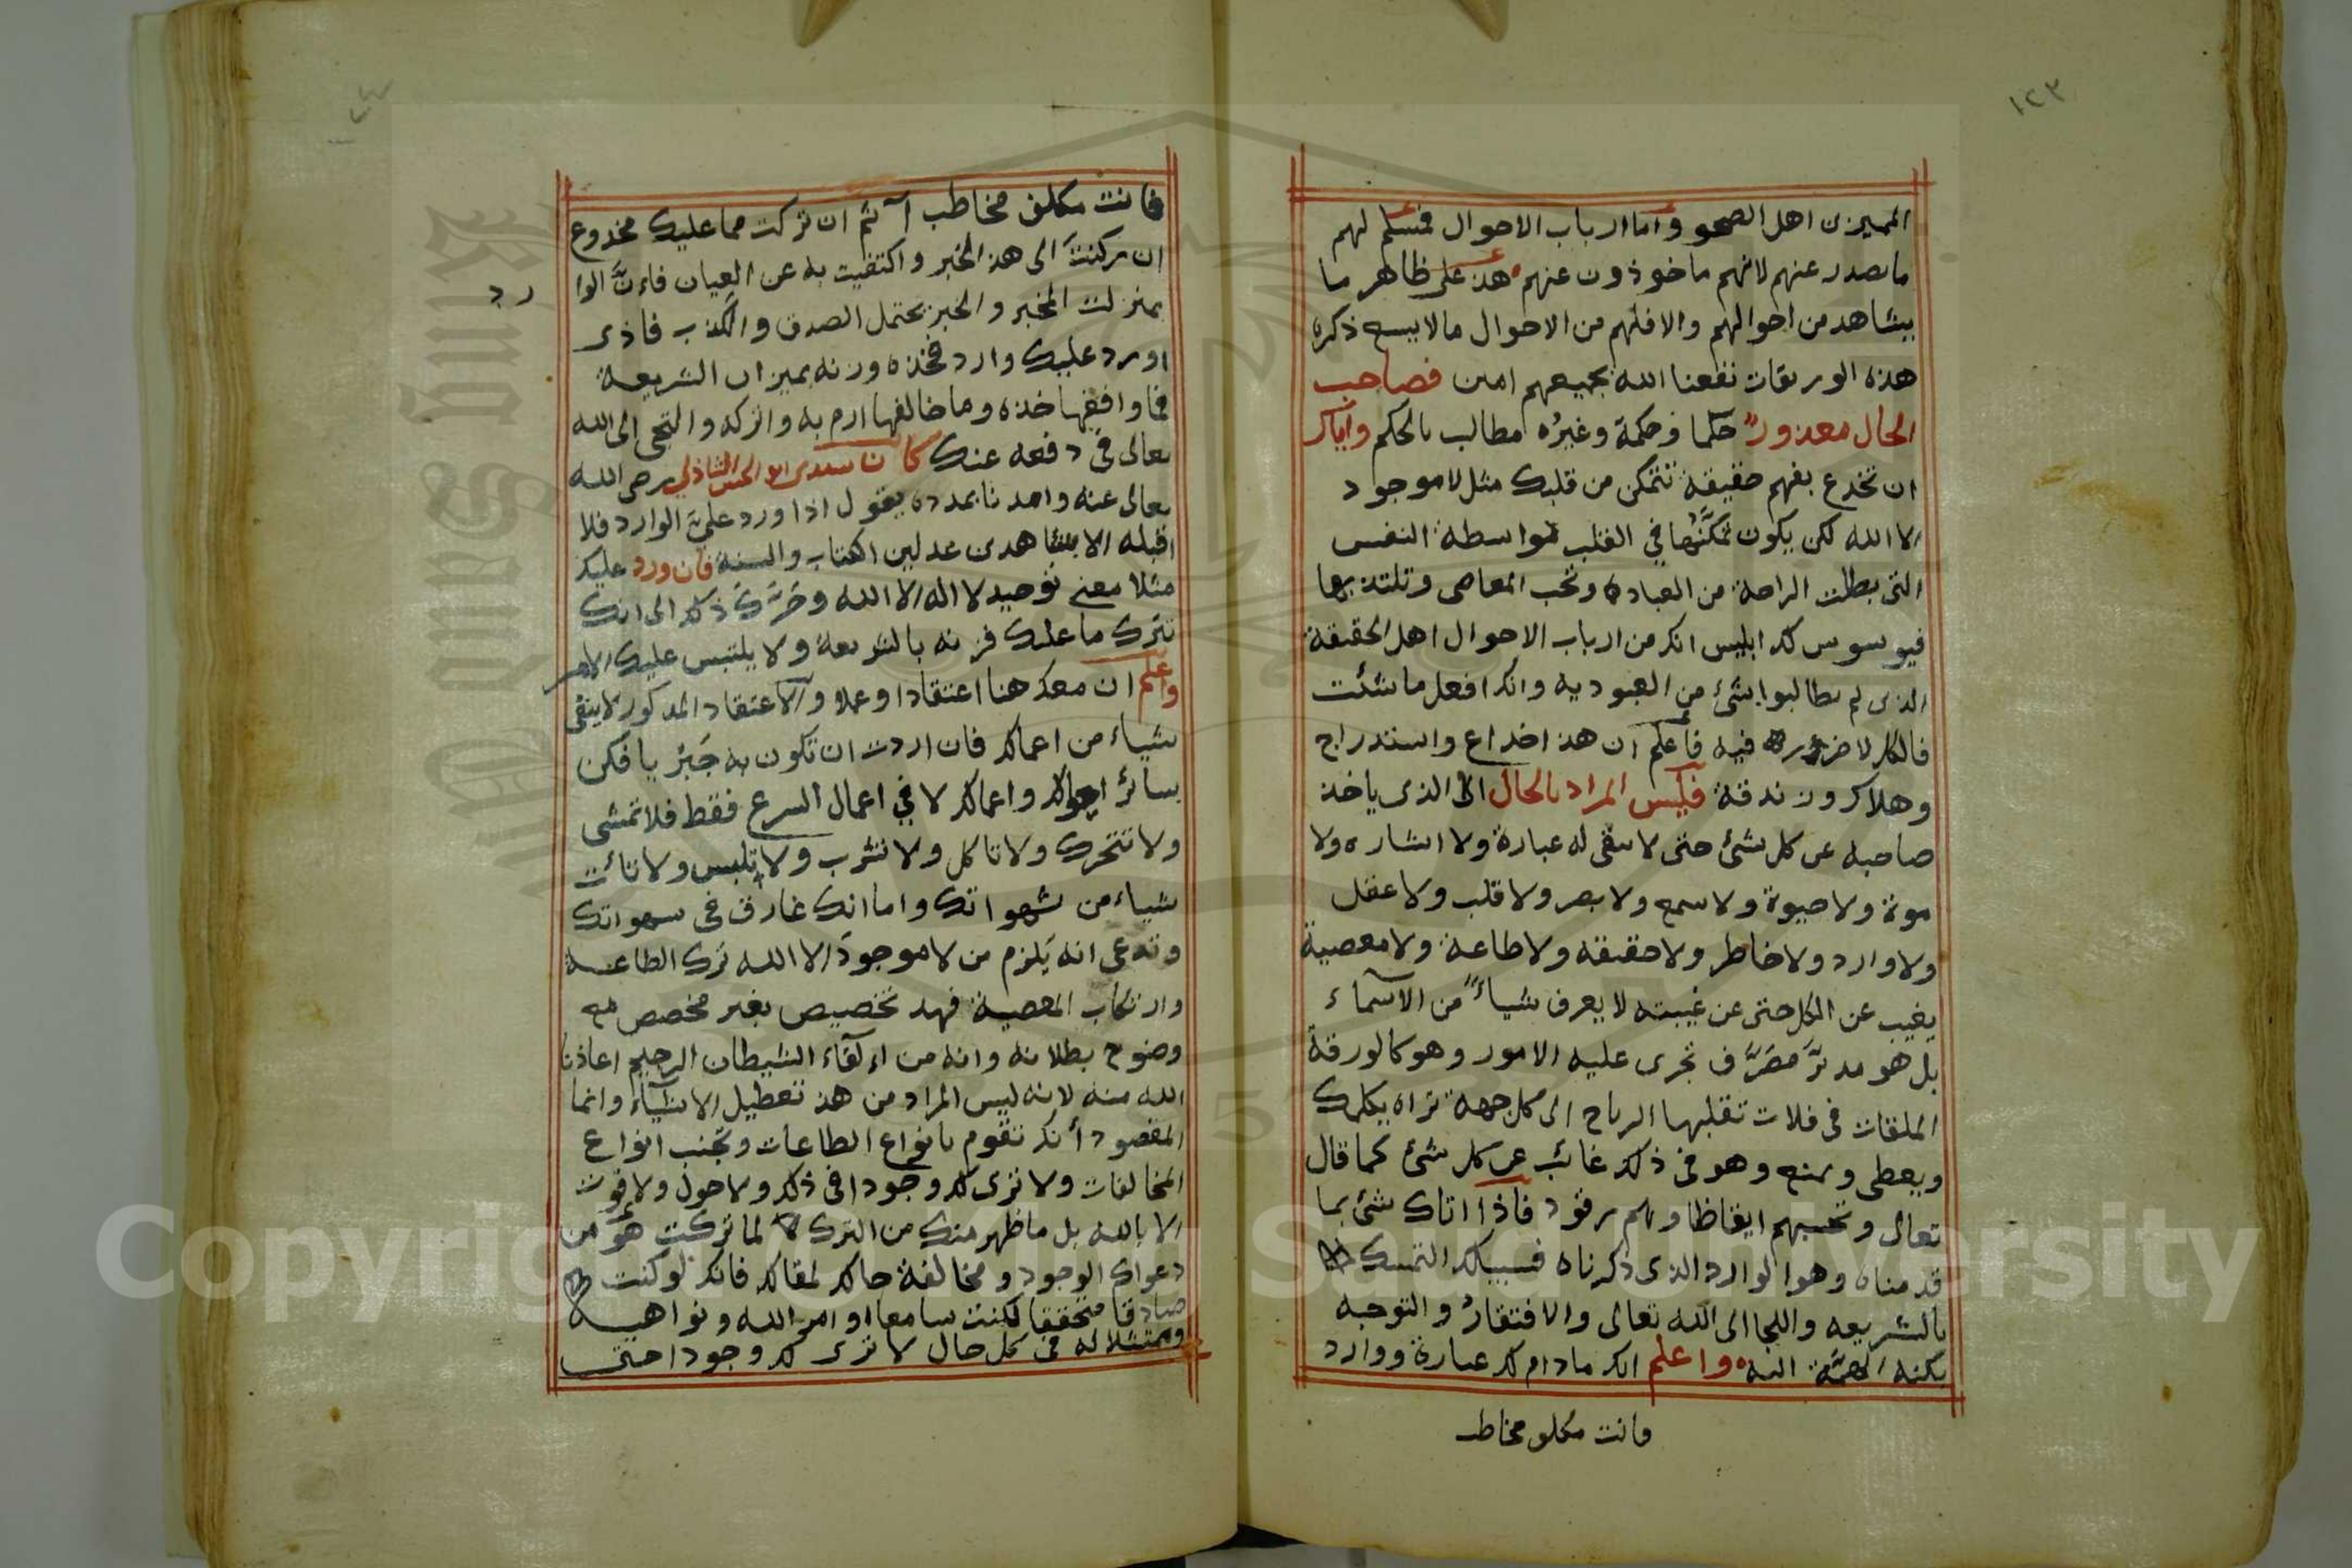 ١٢٣
المميزين اهل الصحو واما ارباب الاحوال فنسلم لهم
ما يصدر عنهم لانهم ماخوذون عنهم هذ على ظاهر ما
يشاهد من احوالهم والا فلهم من الاحوال ما لا يسع ذكره
هذه الوريقات نفعنا الله بجميعهم امين فصاحب
الحال معذور حكما وحكمة وغيره مطالب بالحكم واياك
ان تخدع بفهم حقيقة تتمكن من قلبك مثل لا موجود
الا الله لكن يكون تمكنها في القلب بواسطة النفس
التي بطلت الراحة من العبادة وتحب المعاصي وتلتذ بها
فيوسوس لك ابليس انك من ارباب الاحوال اهل الحقيقة
الذي لم يطالبوا بشئ من العبوديه وانك افعل ما شئت
فالكل لا ضرر فيه فاعلم ان هذ اخداع واستدراج
وهلاك وزندقة فليس المراد بالحال الا الذي ياخذ
صاحبه عن كل شئ حتى لا يبقى له عبارة ولا اشاره ولا
موة ولا حيوة ولا سمع ولا بصر ولا قلب ولا عقل
ولا وارد ولا خاطر ولا حقيقه ولا طاعة ولا معصية
يغيب عن الكل حتى عن غيبته لا يعرف شياء من الاسماء
بل هو مدبر مصرف تجرى عليه الامور وهو كالورقة
الملقات في فلات تقلبها الرياح الى كل جهة تراه يكلمك
ويعطى ويمنع وهو في ذلك غائب عن كل شئ كما قال
تعالى وتحسبهم ايقاظا وهم رقود فاذا اتاك شئ بما
قدمناه وهو الوارد الذي ذكرناه فسبيلك التمسك
بالشريعه واللجا الى الله تعالى والافتقار والتوجه
بكنه الهمة اليه واعلم انك مادام لك عبارة ووارد
وانت مكلف مخاطب
١٢٤
فانت مكلف مخاطب آثم ان تركت مما عليك مخدوع
ان ركنت الى هذ الخبر واكتفيت به عن العيان فاءن الوا
رد
بمنزلت المخبر والخبر يحتمل الصدق والكذب فاذى
اورد عليك وارد فخذه وزنه بميزان الشريعة
فما وافقها خذه وما خالفها ارم به واتركه والتجى الى الله
تعالى في دفعه عنك كان سيدى ابو الحسن الشاذلي رضى الله
تعالى عنه وامدنا بمدده يقول اذا ورد علي الوارد فلا
اقبله الا بشاهدين عدلين الكتاب والسنة فان ورد عليك
مثلا معنى توحيد لا اله الا الله وجرك ذلك الى انك
تترك ما عليك فزنه بالشريعة ولا يلتبس عليك الامر
واعلم ان معك هنا اعتقادا وعملا والاعتقاد المذكور لا يبقى
شياء من اعمالك فان اردت ان تكون به جبريا فكن
بسائر احوالك واعمالك لا في اعمال الشرع فقط فلا تمشى
ولا تتحرك ولا تاكل ولا تشرب ولا تلبس ولا تائت
شياء من شهواتك واما انك غارق في شهواتك
وتدعى انه يلزم من لا موجود الا الله ترك الطاعة
وارتكاب المعصية فهذ تخصيص بغير مخصص مع
وضوح بطلانه وانه من القاء الشيطان الرجيم اعاذنا
الله منه لانه ليس المراد من هذ تعطيل الاشياء وانما
المقصود انك تقوم بانواع الطاعات وتجنب انواع
المخالفات ولا ترى لك وجودا في ذلك ولا حول ولا قوت
الا بالله بل ما ظهر منك من الترك لما تركت هو من
دعواك الوجود ومخالفة حالك لمقالك فانك لو كنت
صادقا متحققا لكنت سامعا اوامر الله ونواهيه
وممتثلا له في كل حال لا ترى لك وجودا حتى
Copyright © King Saud University